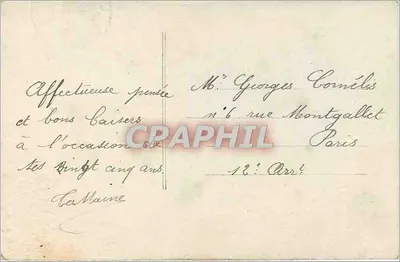 Affectueuse pensée
et bons baisers
à l'occasion de
tes vingt cinq ans
Mr Georges Cornélis
n° 6 rue Montgallet
Paris
12e Arrt
CPAPHIL